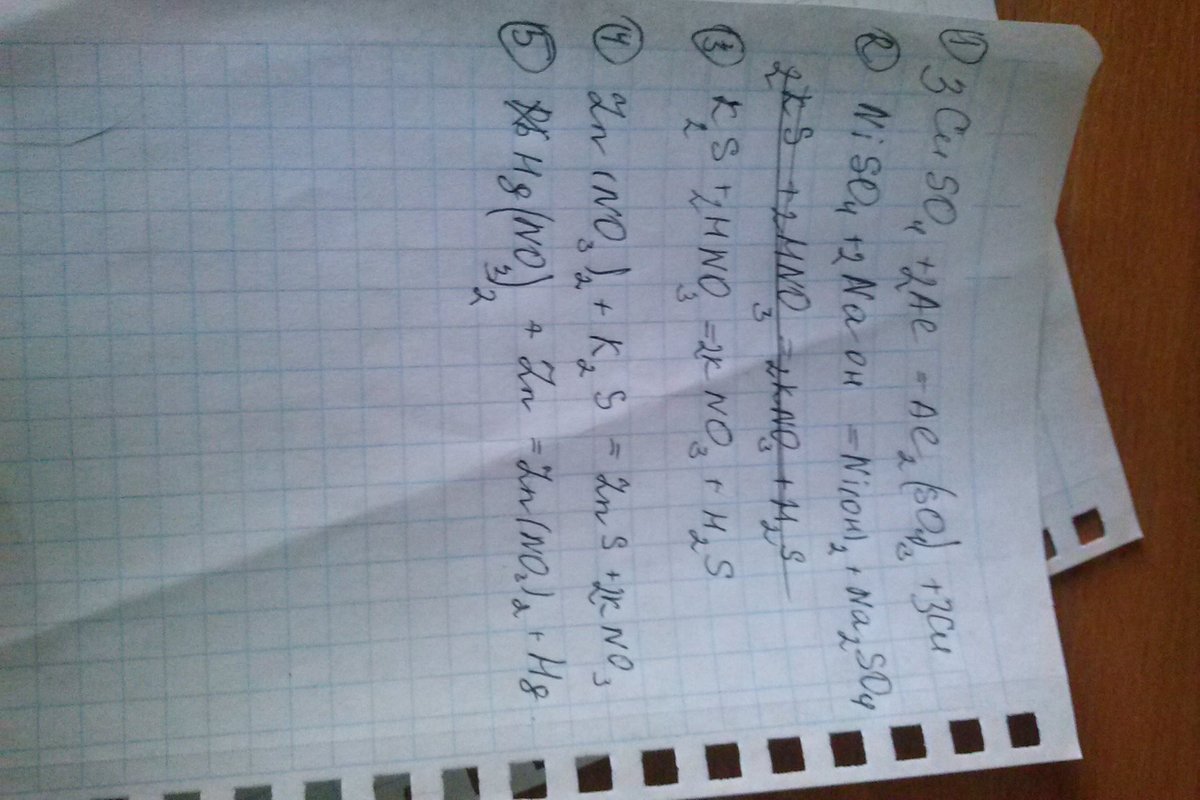 ① 3CuSO₄ + 2Al = Al₂(SO₄)₃ + 3Cu
② NiSO₄ + 2NaOH = Ni(OH)₂ + Na₂SO₄
2KS + 2HNO₃ = 2KNO₃ + H₂S
③ K₂S + 2HNO₃ = 2KNO₃ + H₂S
④ Zn(NO₃)₂ + K₂S = ZnS + 2KNO₃
⑤ Hg(NO₃)₂ + Zn = Zn(NO₃)₂ + Hg